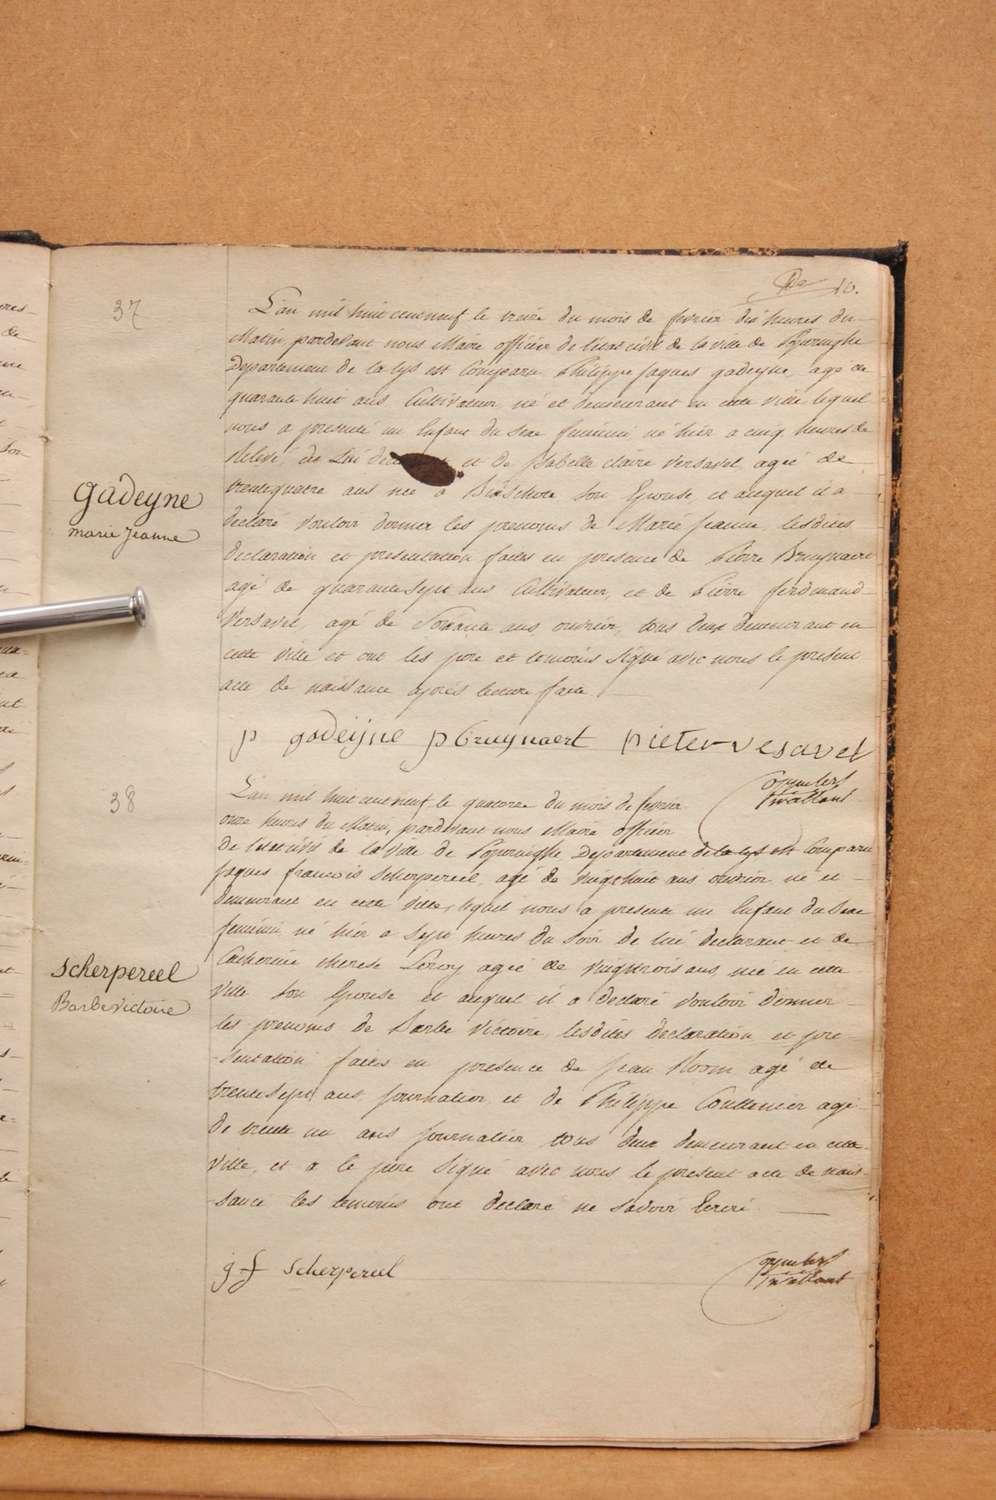 10.
37
L'an mil huit cent neuf le treize du mois de fevrier dix heures du
Matin, pardevant nous Maire officier de l'etat civil de la ville de Poperinghe
Departement de la lys est Comparu Philippe Jaques gadeyne, agé de
quarante huit ans Cultivateur, né et demeurant en cette ville lequel
nous a presenté un Enfant du Sexe feminin né hier a cinq heures de
Relevé, de Lui et de Isabelle claire Versavel, agée de
trentequatre ans née a Bixschote Son Epouse, et auquel il a
declaré Vouloir donner les prenoms de Marie Jeanne, lesdites
declaration et presentation faites en presence de Pierre Bruynaert
agé de quarante sept ans Cultivateur, et de Pierre ferdinand
Versavel, agé de Soixante ans ouvrier, tous deux demeurant en
cette ville et ont les pere et temoins Signé avec nous le present
acte de naissance après lecture faite
gadeyne
marie jeanne
p gadeijne p Bruynaert pieter vesavel
38
L'an mil huit cent neuf, le quatorze du mois de fevrier
onze heures du Matin, pardevant nous Maire officier
de l'etat civil de la ville de Poperinghe Departement de la lys est Comparu
Jaques francois Scherpereel, agé de vingt huit ans ouvrier né et
demeurant en cette ville, lequel nous a presenté un Enfant du Sexe
feminin, né hier a Sept heures du Soir de lui declarant et de
Catherine therese Leroy agée de vingttrois ans, née en cette
Ville Son Epouse et auquel il a declaré Vouloir donner
les prenoms de Barbe Victoire, lesdites declaration et pre
-sentation faites en presence de Jean Room agé de
trentesept ans journalier, et de Philippe Couttenier agé
de trente un ans journalier tous deux demeurant en cette
ville, et a le père Signé avec nous le present acte de nais
-sance les temoins ont declaré ne Savoir Ecrire.
Scherpereel
Barbe victoire
j f Scherpereel